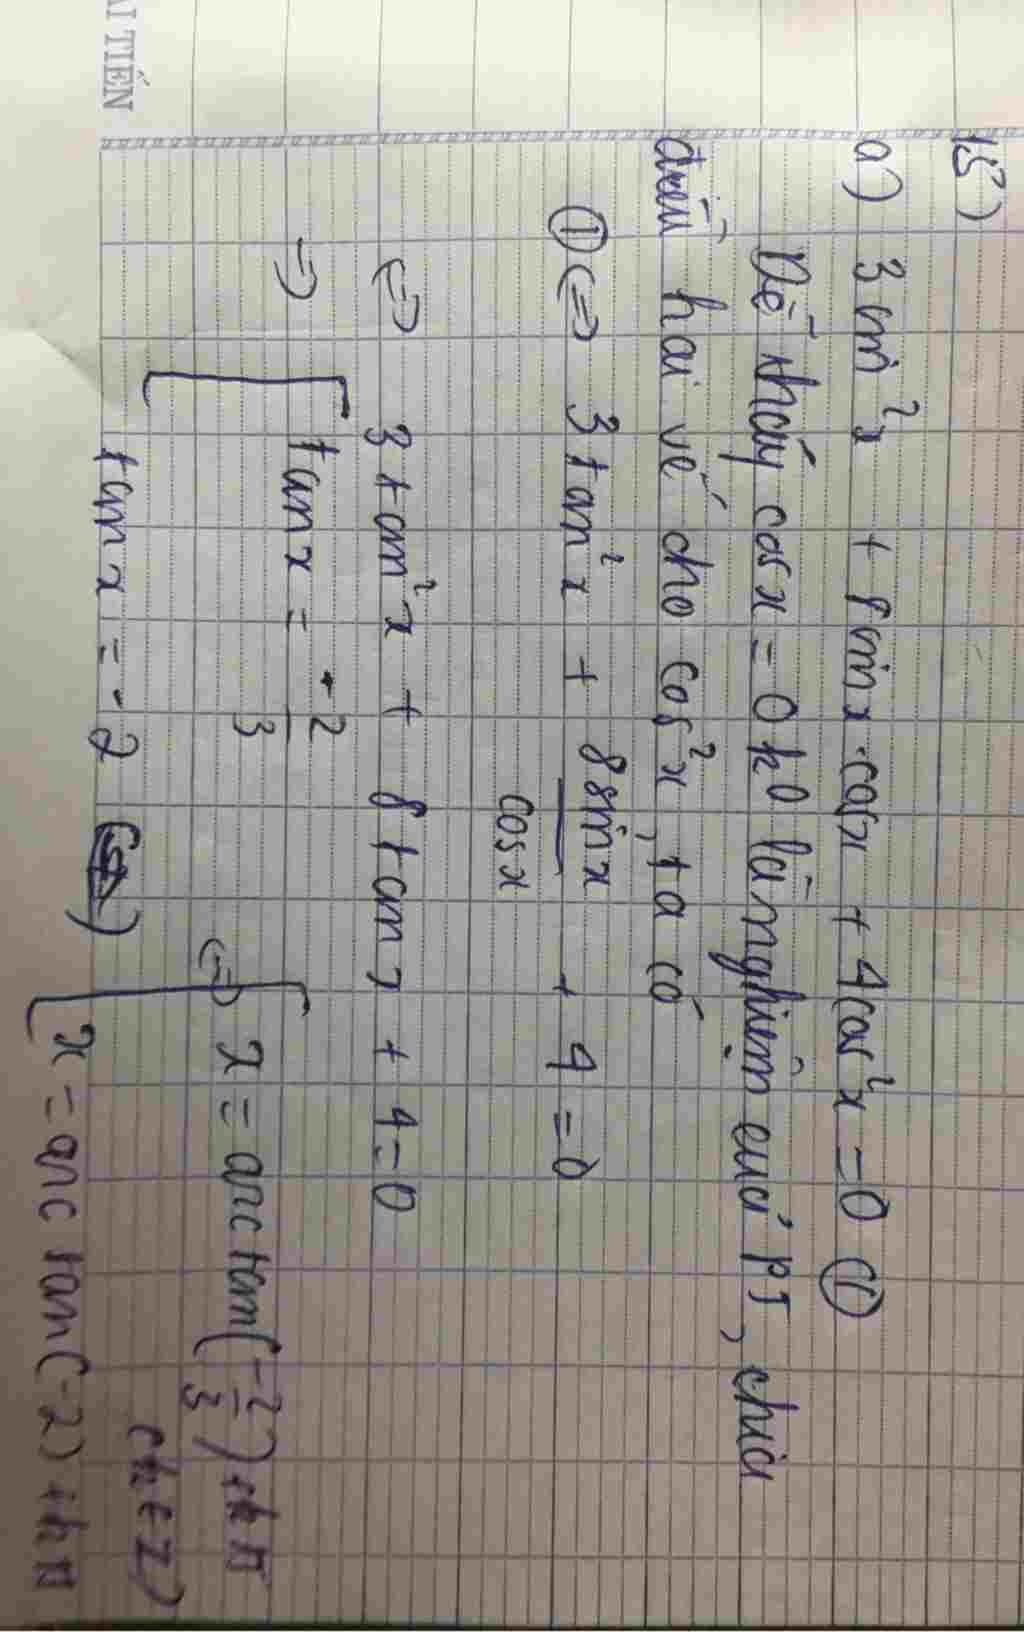 ẢI TIẾN
15)
a) 3 sin²x + 8 sin x . cos x + 4 cos²x = 0 (1)
Dễ thấy cos x = 0 k⁰ là nghiệm của PT, chia
đều hai vế cho cos²x, ta có
(1) <=> 3 tan²x + 8 sin x / cos x + 4 = 0
<=> 3 tan²x + 8 tan x + 4 = 0
=> [ tan x = -2/3
tan x = -2
<=> [ x = arc tan(-2/3) + kπ
x = arc tan(-2) + kπ
(k ∈ Z)